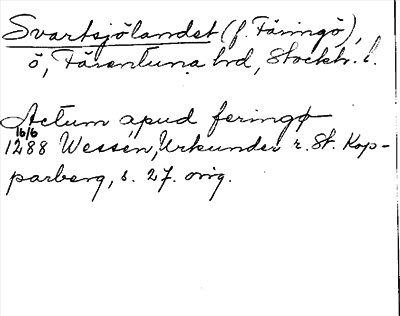 Svartsjölandet (f. Färingö),
ö, Färentuna hd, Stockh. l.
Actum apud feringø
16/6
1288 Wessén, Urkunder r. St. Kop-
parberg, s. 27. orig.